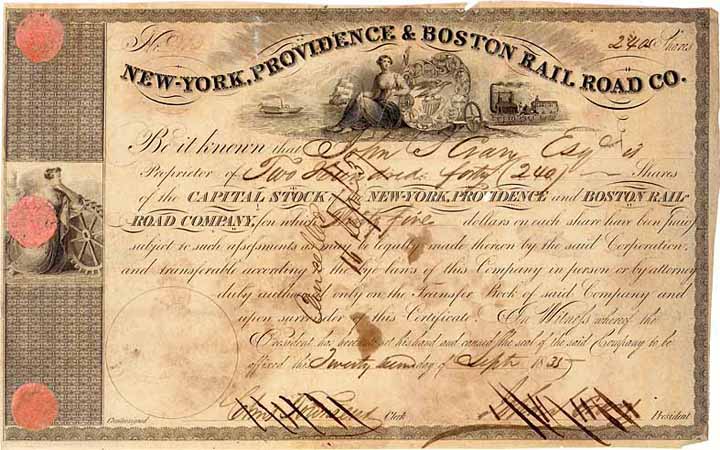 No. 240 Shares
NEW-YORK, PROVIDENCE & BOSTON RAIL ROAD CO.
Be it known that John S Crary Esqr is
Proprietor of Two Hundred forty (240) Shares
of the CAPITAL STOCK of the NEW-YORK, PROVIDENCE and BOSTON RAIL
ROAD COMPANY, for which five dollars on each share have been paid
subject to such assessments as may be legally made thereon by the said Corporation
and transferable according to the bye laws of this Company in person or by attorney
duly authorised only on the Transfer Book of said Company and
upon surrender of this Certificate. In Witness whereof the
President has hereunto set his hand and caused the seal of the said Company to be
affixed this Twenty day of Sept 1835
Clerk President
Countersigned
Cancelled
16